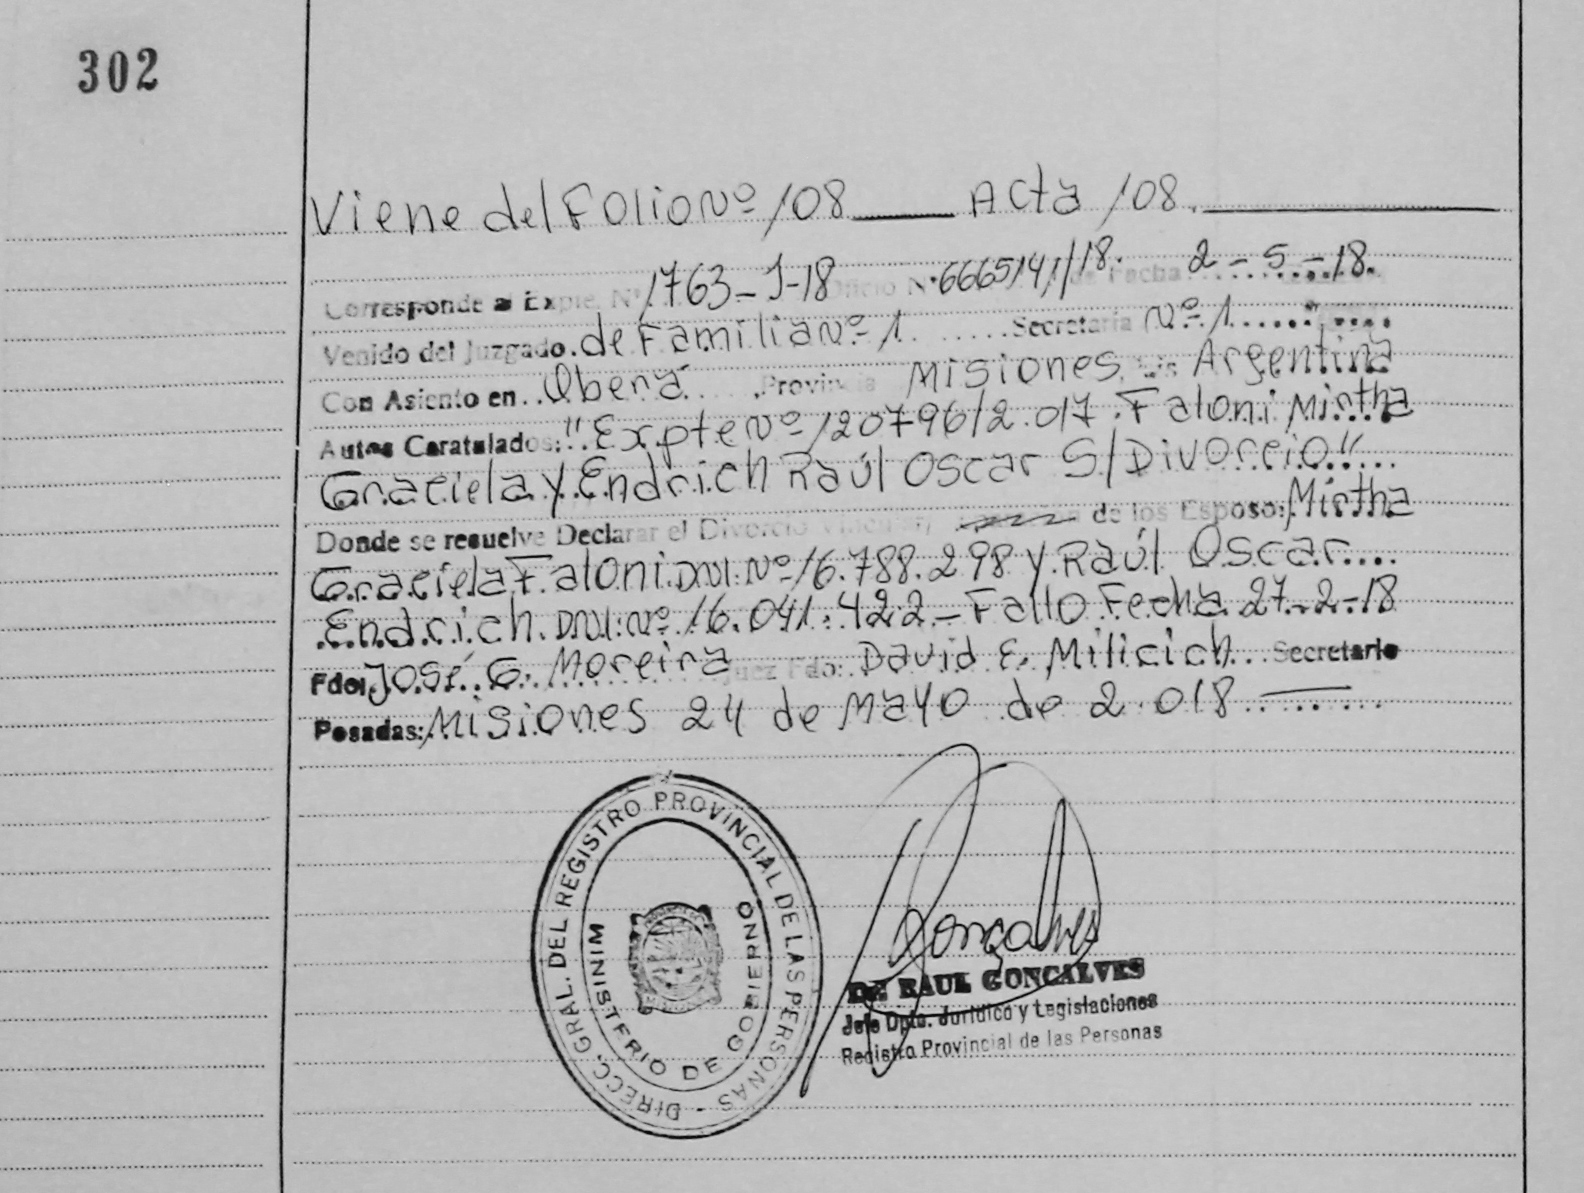 302
Viene del Folio Nº 108 Acta 108.
Corresponde al Expte. Nº 1763-J-18 Oficio N·6665141/18. de Fecha 2-5-18.
Venido del Juzgado de Familia Nº 1. Secretaria Nº 1
Con Asiento en Oberá Provincia Misiones, Argentina
Autos Caratulados: "Expte Nº 120796/2.017. Faloni Mirtha
Graciela y Endrich Raúl Oscar S/Divorcio"
Donde se resuelve Declarar el Divorcio Vincular de los Esposo: Mirtha
Graciela Faloni DNI. Nº 16.788.298 y Raúl Oscar
Endrich. DNI. Nº 16.041.422.- Fallo Fecha 27-2-18
Fdo: José G. Moreira Juez Fdo: David E. Milicich Secretario
Posadas: Misiones 24 de Mayo de 2.018
DIRECC. GRAL. DEL REGISTRO PROVINCIAL DE LAS PERSONAS -
MINISTERIO DE GOBIERNO
Gonçalves
Dr. RAUL GONCALVES
Jefe Dpto. Jurídico y Legislaciones
Registro Provincial de las Personas